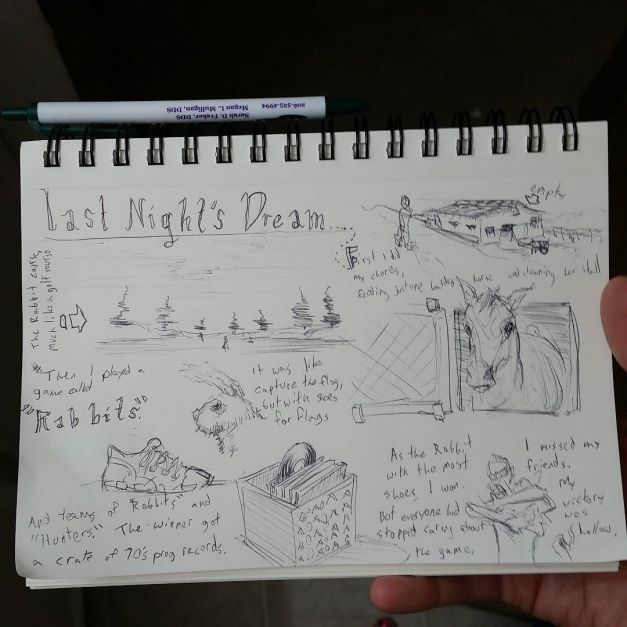 Sarah D. Fraker, DDS
Megan L. Mulligan, DDS
206-525-4994
Last Night's Dream....
empty
First I did
my chores,
feeding just one horse and cleaning her stall
The Rabbit course,
Much like a golf course
Then I played a
game called
"Rabbits."
It was like
capture the flag,
but with shoes
for flags
And teams of "Rabbits" and
"Hunters." The winner got
a crate of 70's prog records.
As the Rabbit
with the most
shoes, I won.
But everyone had
stopped caring about
the game.
I missed my
friends.
My
victory
was
hollow.